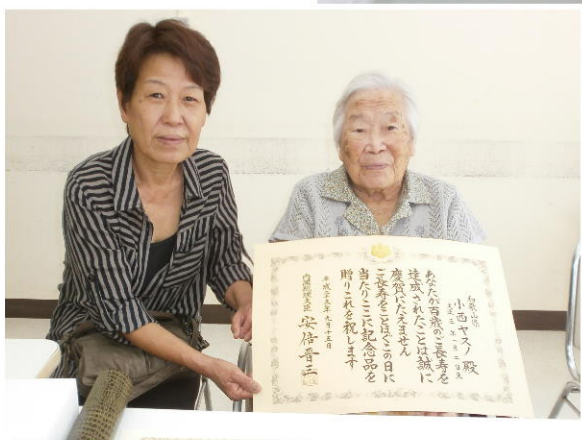 和歌山県
小西ヤスノ殿
あなたが百歳のご長寿を
達成されたことは誠に
慶賀にたえません
ご長寿をことほぐこの日に
当たりここに記念品を
贈りこれを祝します
平成二十五年九月十五日
内閣総理大臣 安倍晋三